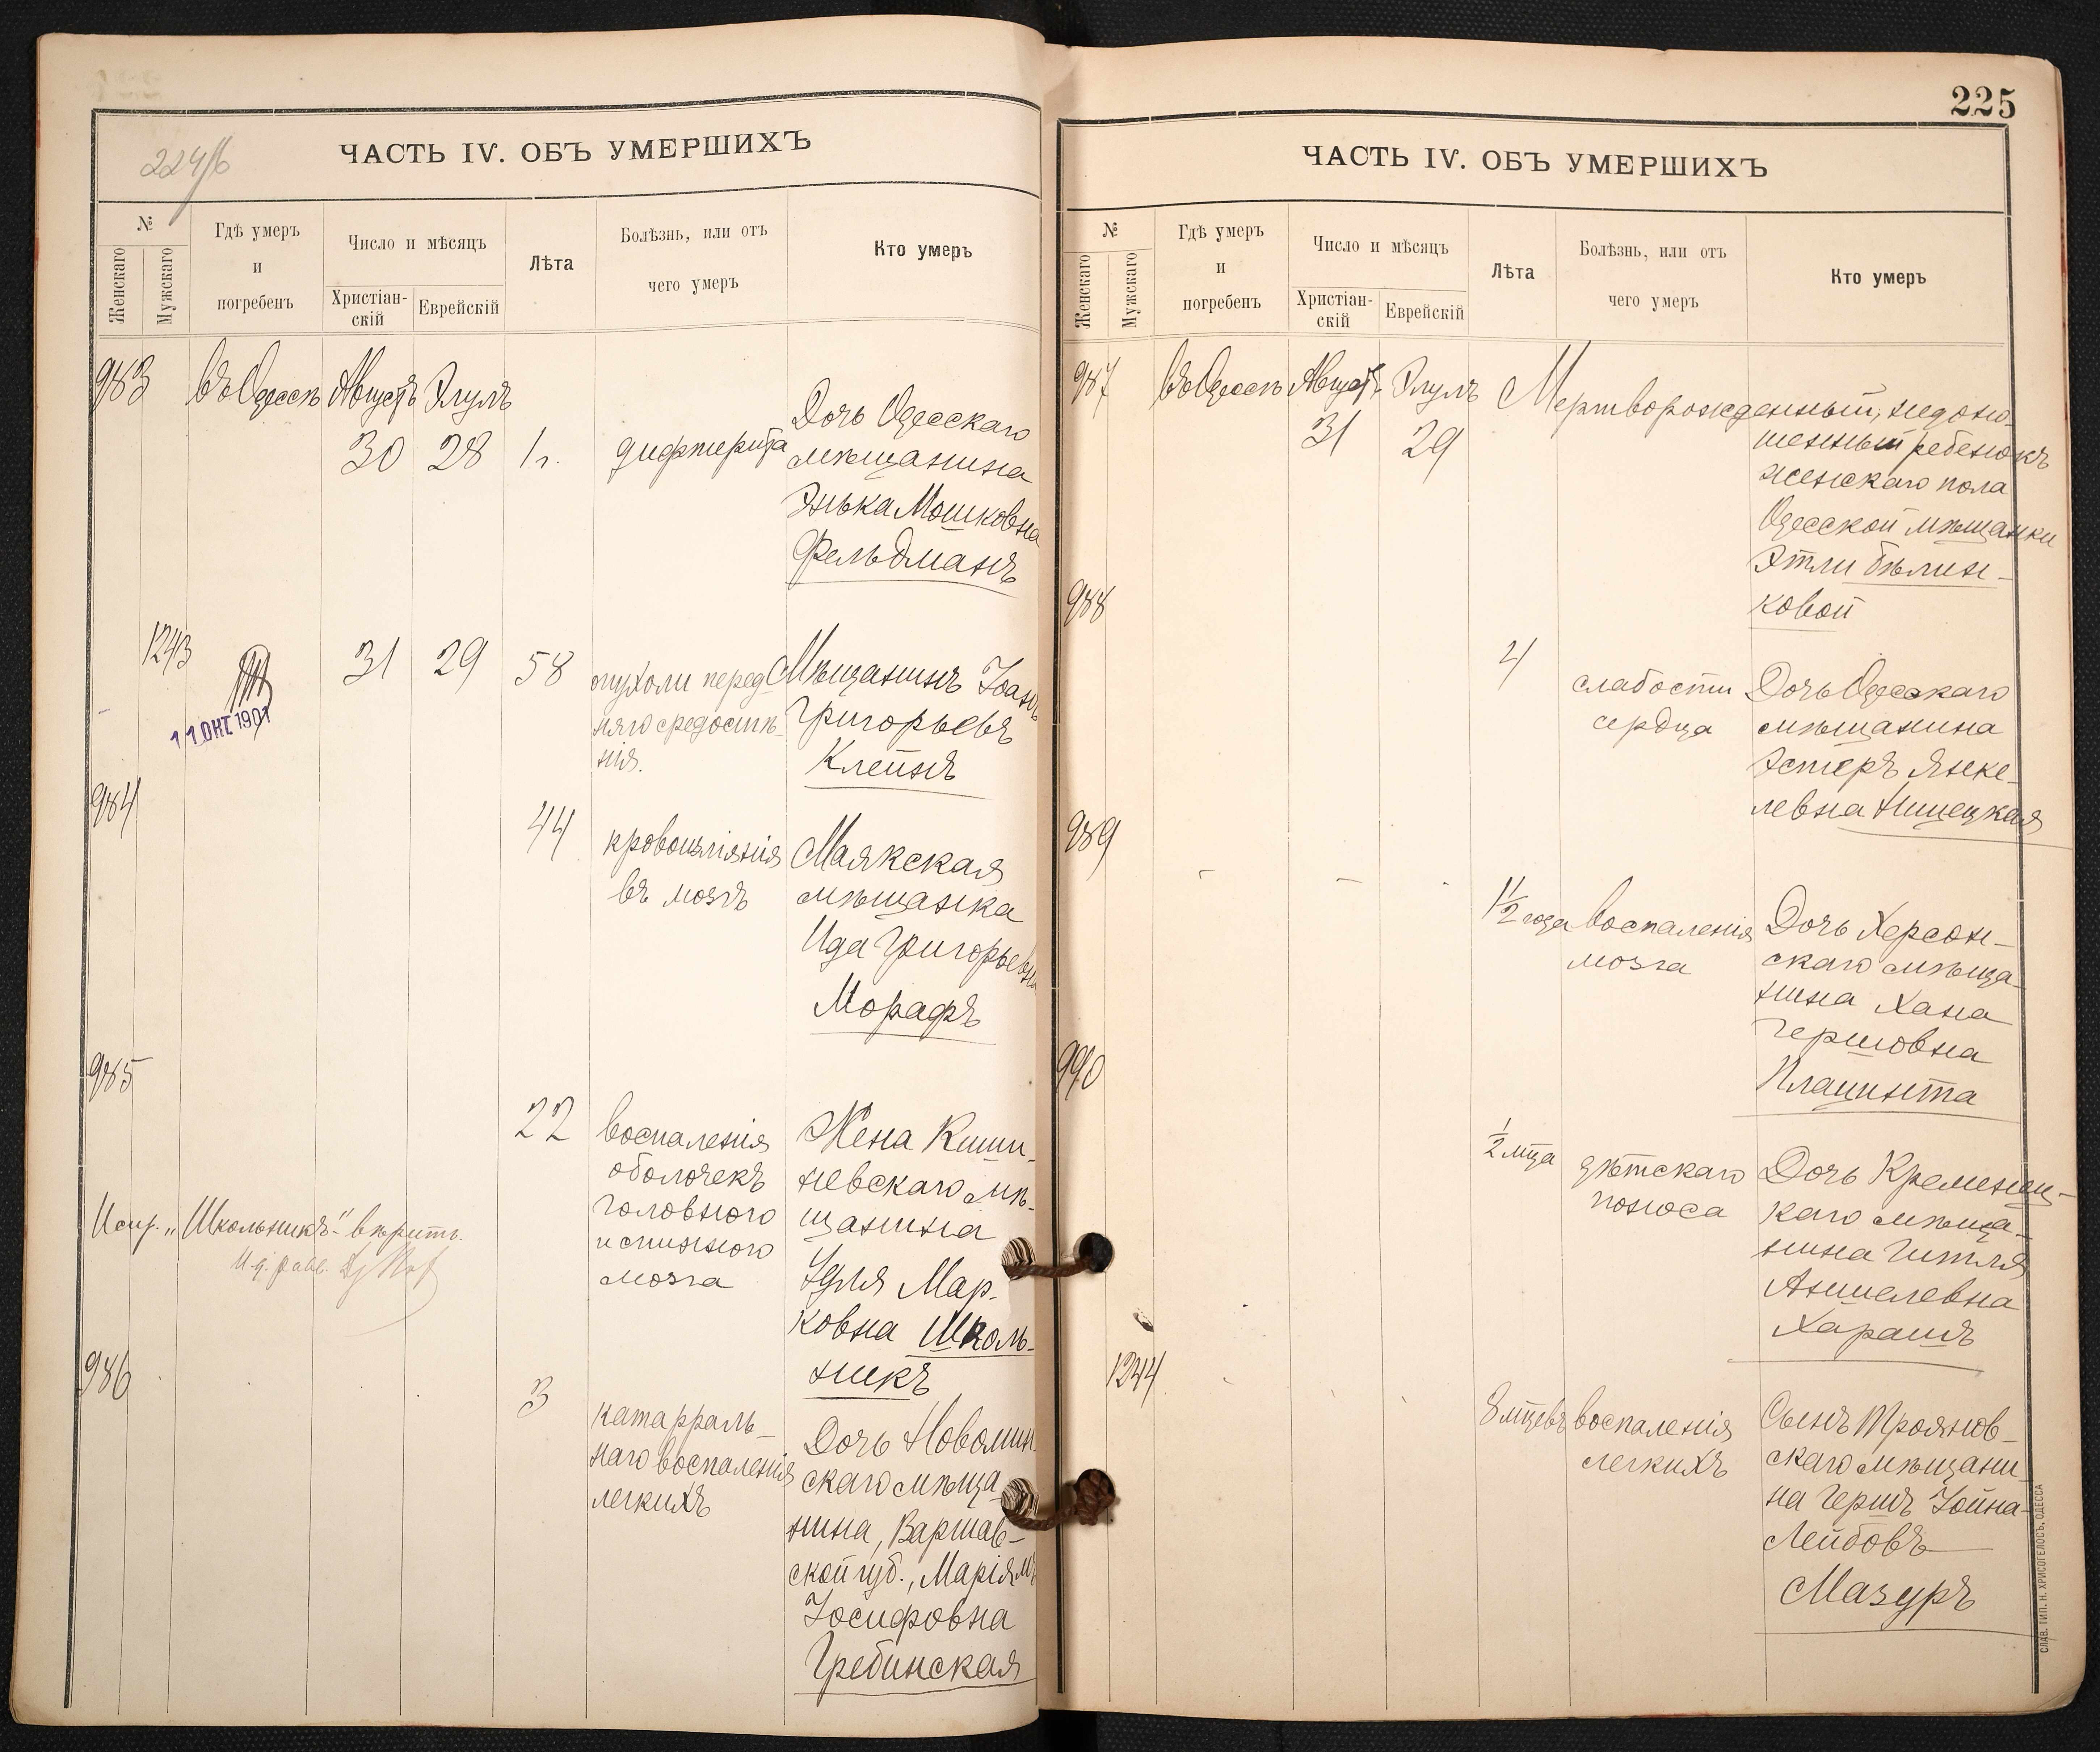 224/б
ЧАСТЬ IV. ОБЪ УМЕРШИХЪ
№
Женскаго
Мужскаго
Гдѣ умеръ
и
погребенъ
Число и мѣсяцъ
Христіан-
скій
Еврейскій
Лѣта
Болѣзнь, или отъ
чего умеръ
Кто умеръ
983
въ Одессѣ
Августъ
30
Элулъ
28
1 г.
дифтерита
Дочь Одесскаго
мѣщанина
Энька Мошковна
Фельдманъ
1243
11 ОКТ 1901
31
29
58
опухоли перед-
няго средостѣ-
нія.
Мѣщанинъ Іоанъ
Григорьевъ
Клейнъ
984
44
кровоизліянія
въ мозгъ
Маякская
мѣщанка
Ида Григорьевна
Морафъ
985
22
воспаленія
оболочекъ
головного
и спинного
мозга
Жена Киши-
невскаго мѣ-
щанина
Удля Мар-
ковна Школь-
никъ
Испр. „Школьникъ" вѣрить.
И. д. равв.
986
3
катарраль-
наго воспаленія
легкихъ
Дочь Новомин-
скаго мѣща-
нина, Варшав-
ской губ., Маріямъ
Іосифовна
Гребинская
225
ЧАСТЬ IV. ОБЪ УМЕРШИХЪ
№
Женскаго
Мужскаго
Гдѣ умеръ
и
погребенъ
Число и мѣсяцъ
Христіан-
скій
Еврейскій
Лѣта
Болѣзнь, или отъ
чего умеръ
Кто умеръ
987
въ Одессѣ
Августъ
31
Элулъ
29
Мертворожденный, недоно-
шенный ребенокъ
женскаго пола
Одесской мѣщанки
Этли Бѣлин-
ковой
988
4
слабости
сердца
Дочь Одесскаго
мѣщанина
Эстеръ Янке-
левна Нишецкая
989
1 1/2 года
воспаленія
мозга
Дочь Херсон-
скаго мѣща-
нина Хана
Гершовна
Плацинта
990
1/2 мца
дѣтскаго
поноса
Дочь Кременец-
каго мѣща-
нина Гитля
Аншелевна
Харашъ
1244
8 мцевъ
воспаленія
легкихъ
Сынъ Трояновскаго
скаго мѣщани-
на Гершъ Іойна-
Лейбовъ
Мазуръ
СЛАВ. ТИП. Н. ХРИСОГЕЛОСЪ, ОДЕССА